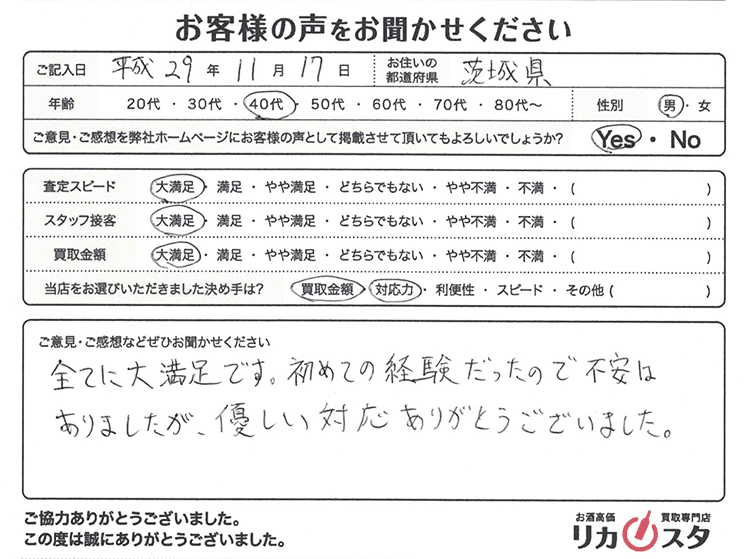 お客様の声をお聞かせください
ご記入日 平成 29 年 11 月 17 日 お住いの都道府県 茨城県
年齢 20代 ・ 30代 ・ 40代 ・ 50代 ・ 60代 ・ 70代 ・ 80代〜 性別 男 ・ 女
ご意見・ご感想を弊社ホームページにお客様の声として掲載させて頂いてもよろしいでしょうか? Yes ・ No
査定スピード 大満足 ・ 満足 ・ やや満足 ・ どちらでもない ・ やや不満 ・ 不満 ・ ( )
スタッフ接客 大満足 ・ 満足 ・ やや満足 ・ どちらでもない ・ やや不満 ・ 不満 ・ ( )
買取金額 大満足 ・ 満足 ・ やや満足 ・ どちらでもない ・ やや不満 ・ 不満 ・ ( )
当店をお選びいただきました決め手は? 買取金額 ・ 対応力 ・ 利便性 ・ スピード ・ その他 ( )
ご意見・ご感想などぜひお聞かせください
全てに大満足です。初めての経験だったので不安は
ありましたが、優しい対応ありがとうございました。
ご協力ありがとうございました。
この度は誠にありがとうございました。
お酒高価 買取専門店
リカスタ